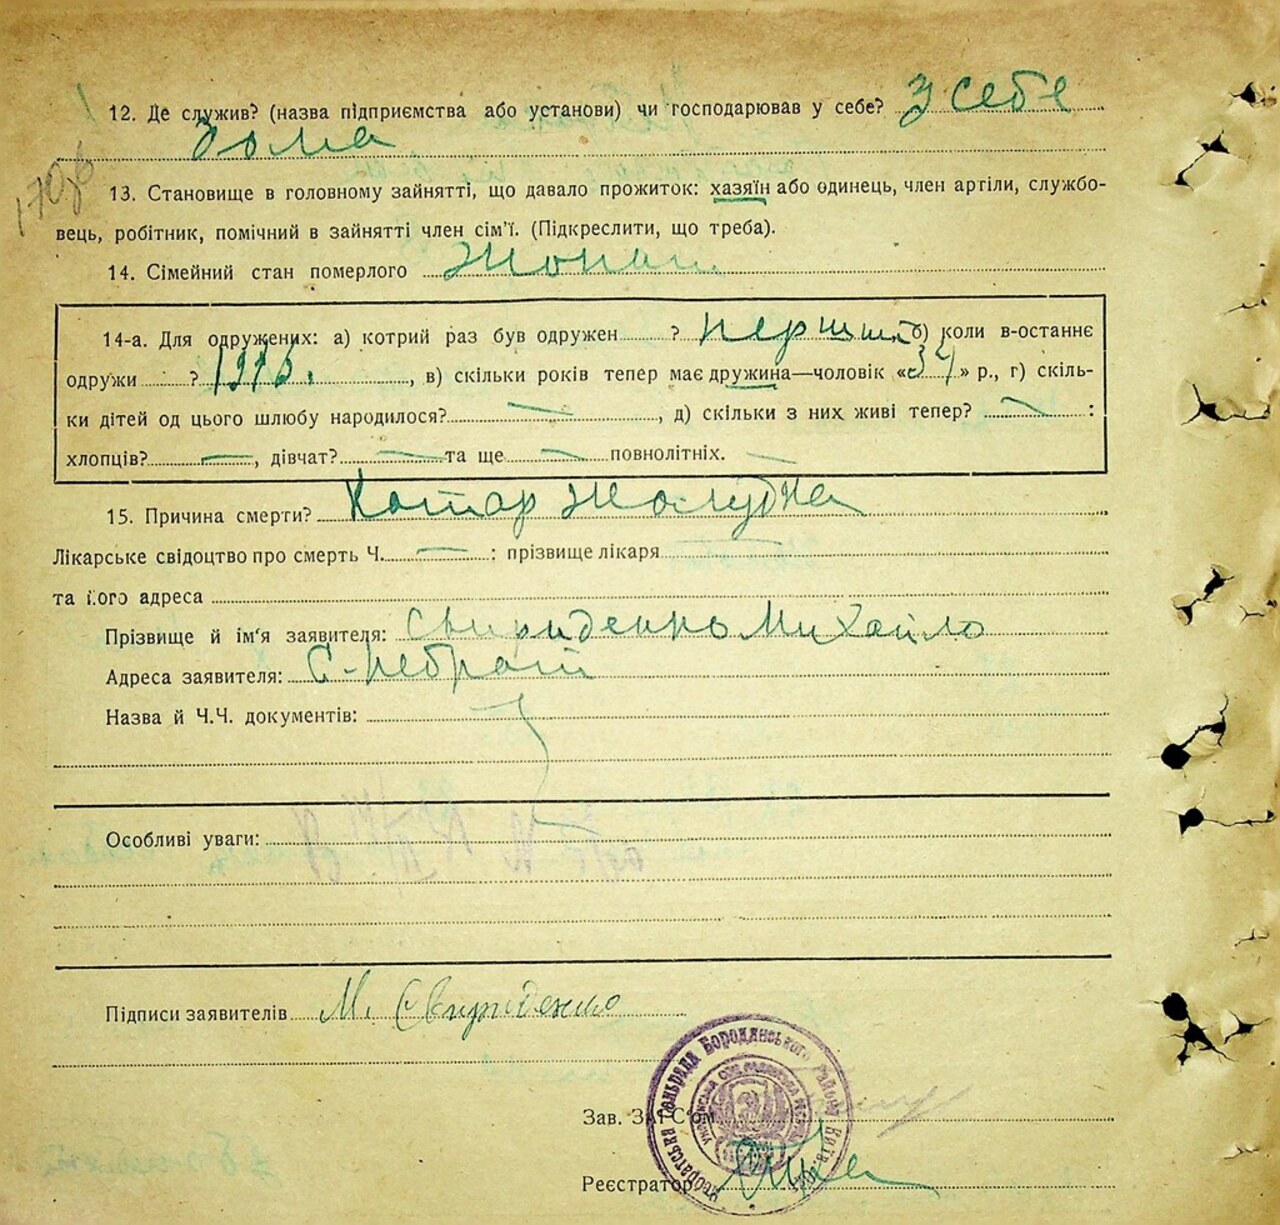 12. Де служив? (назва підприємства або установи) чи господарював у себе? У себе
дома
170зв
13. Становище в головному зайнятті, що давало прожиток: хазяїн або одинець, член артілі, службо-
вець, робітник, помічний в зайнятті член сім'ї. (Підкреслити, що треба).
14. Сімейний стан померлого Жонат
14-а. Для одружених: а) котрий раз був одружен ? перший б) коли в-останнє
одружи ? , в) скільки років тепер має дружина—чоловік «37» р., г) скіль-
ки дітей од цього шлюбу народилося? — , д) скільки з них живі тепер? — :
хлопців? —, дівчат? — та ще — повнолітніх. —
15. Причина смерти? Катар жолудка
Лікарське свідоцтво про смерть Ч. — : прізвище лікаря —
та його адреса
Прізвище й ім'я заявителя: Свириденко Михайло
Адреса заявителя: С-Небрат
Назва й Ч.Ч. документів:
Особливі уваги:
Підписи заявителів М. Свириденко
Небратська сільрада Бородянського району Київ.
Українська Соц. Радянська Респуб.
Зав. ЗАГС'ом
Реєстратор